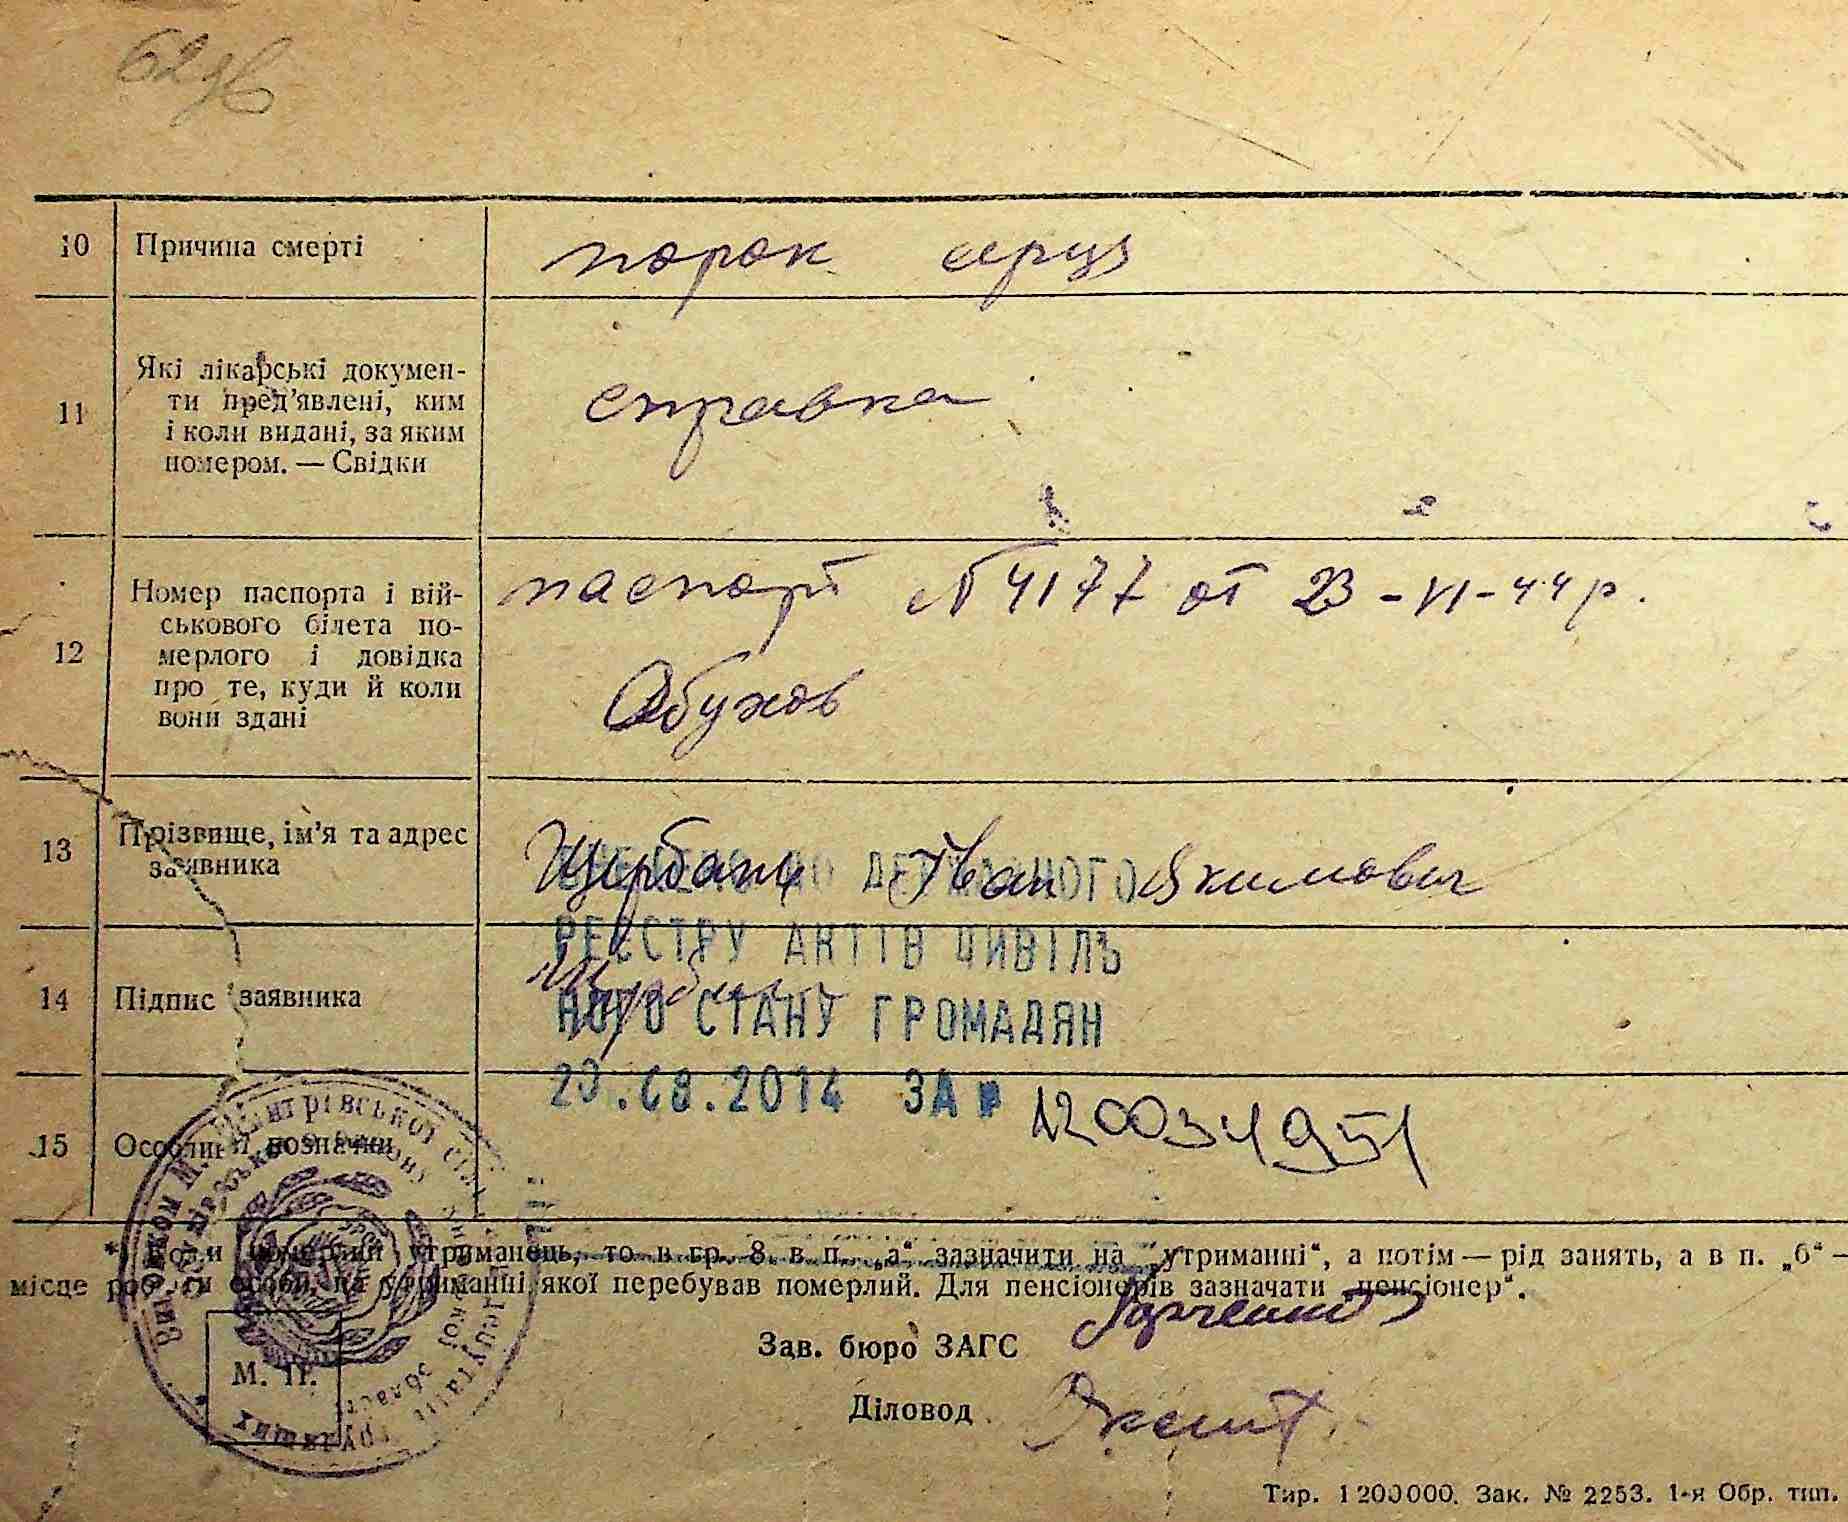 10 Причина смерті порок серця
11 Які лікарські докумен-
ти пред'явлені, ким
і коли видані, за яким
номером. — Свідки
справка
12 Номер паспорта і вій-
ськового білета по-
мерлого і довідка
про те, куди й коли
вони здані
паспорт № 4177 от 23-VI-44 р.
Обухов
13 Прізвище, ім'я та адрес
заявника
Щербань Іван Якимович
ДЕРЖАВНОГО
РЕЄСТРУ АКТІВ ЦИВІЛЬ
14 Підпис заявника
НОГО СТАНУ ГРОМАДЯН
.08.2014 ЗА №
15 Особливі позначки
*) Коли померлий утриманець, то в гр. 8 в п. „а“ зазначити на „утриманні“, а потім — рід занять, а в п. „б“ —
місце роботи особи, на утриманні якої перебував померлий. Для пенсіонерів зазначати „пенсіонер“.
Зав. бюро ЗАГС
М. П.
Діловод
Тир. 1200000. Зак. № 2253. 1-я Обр. тип.